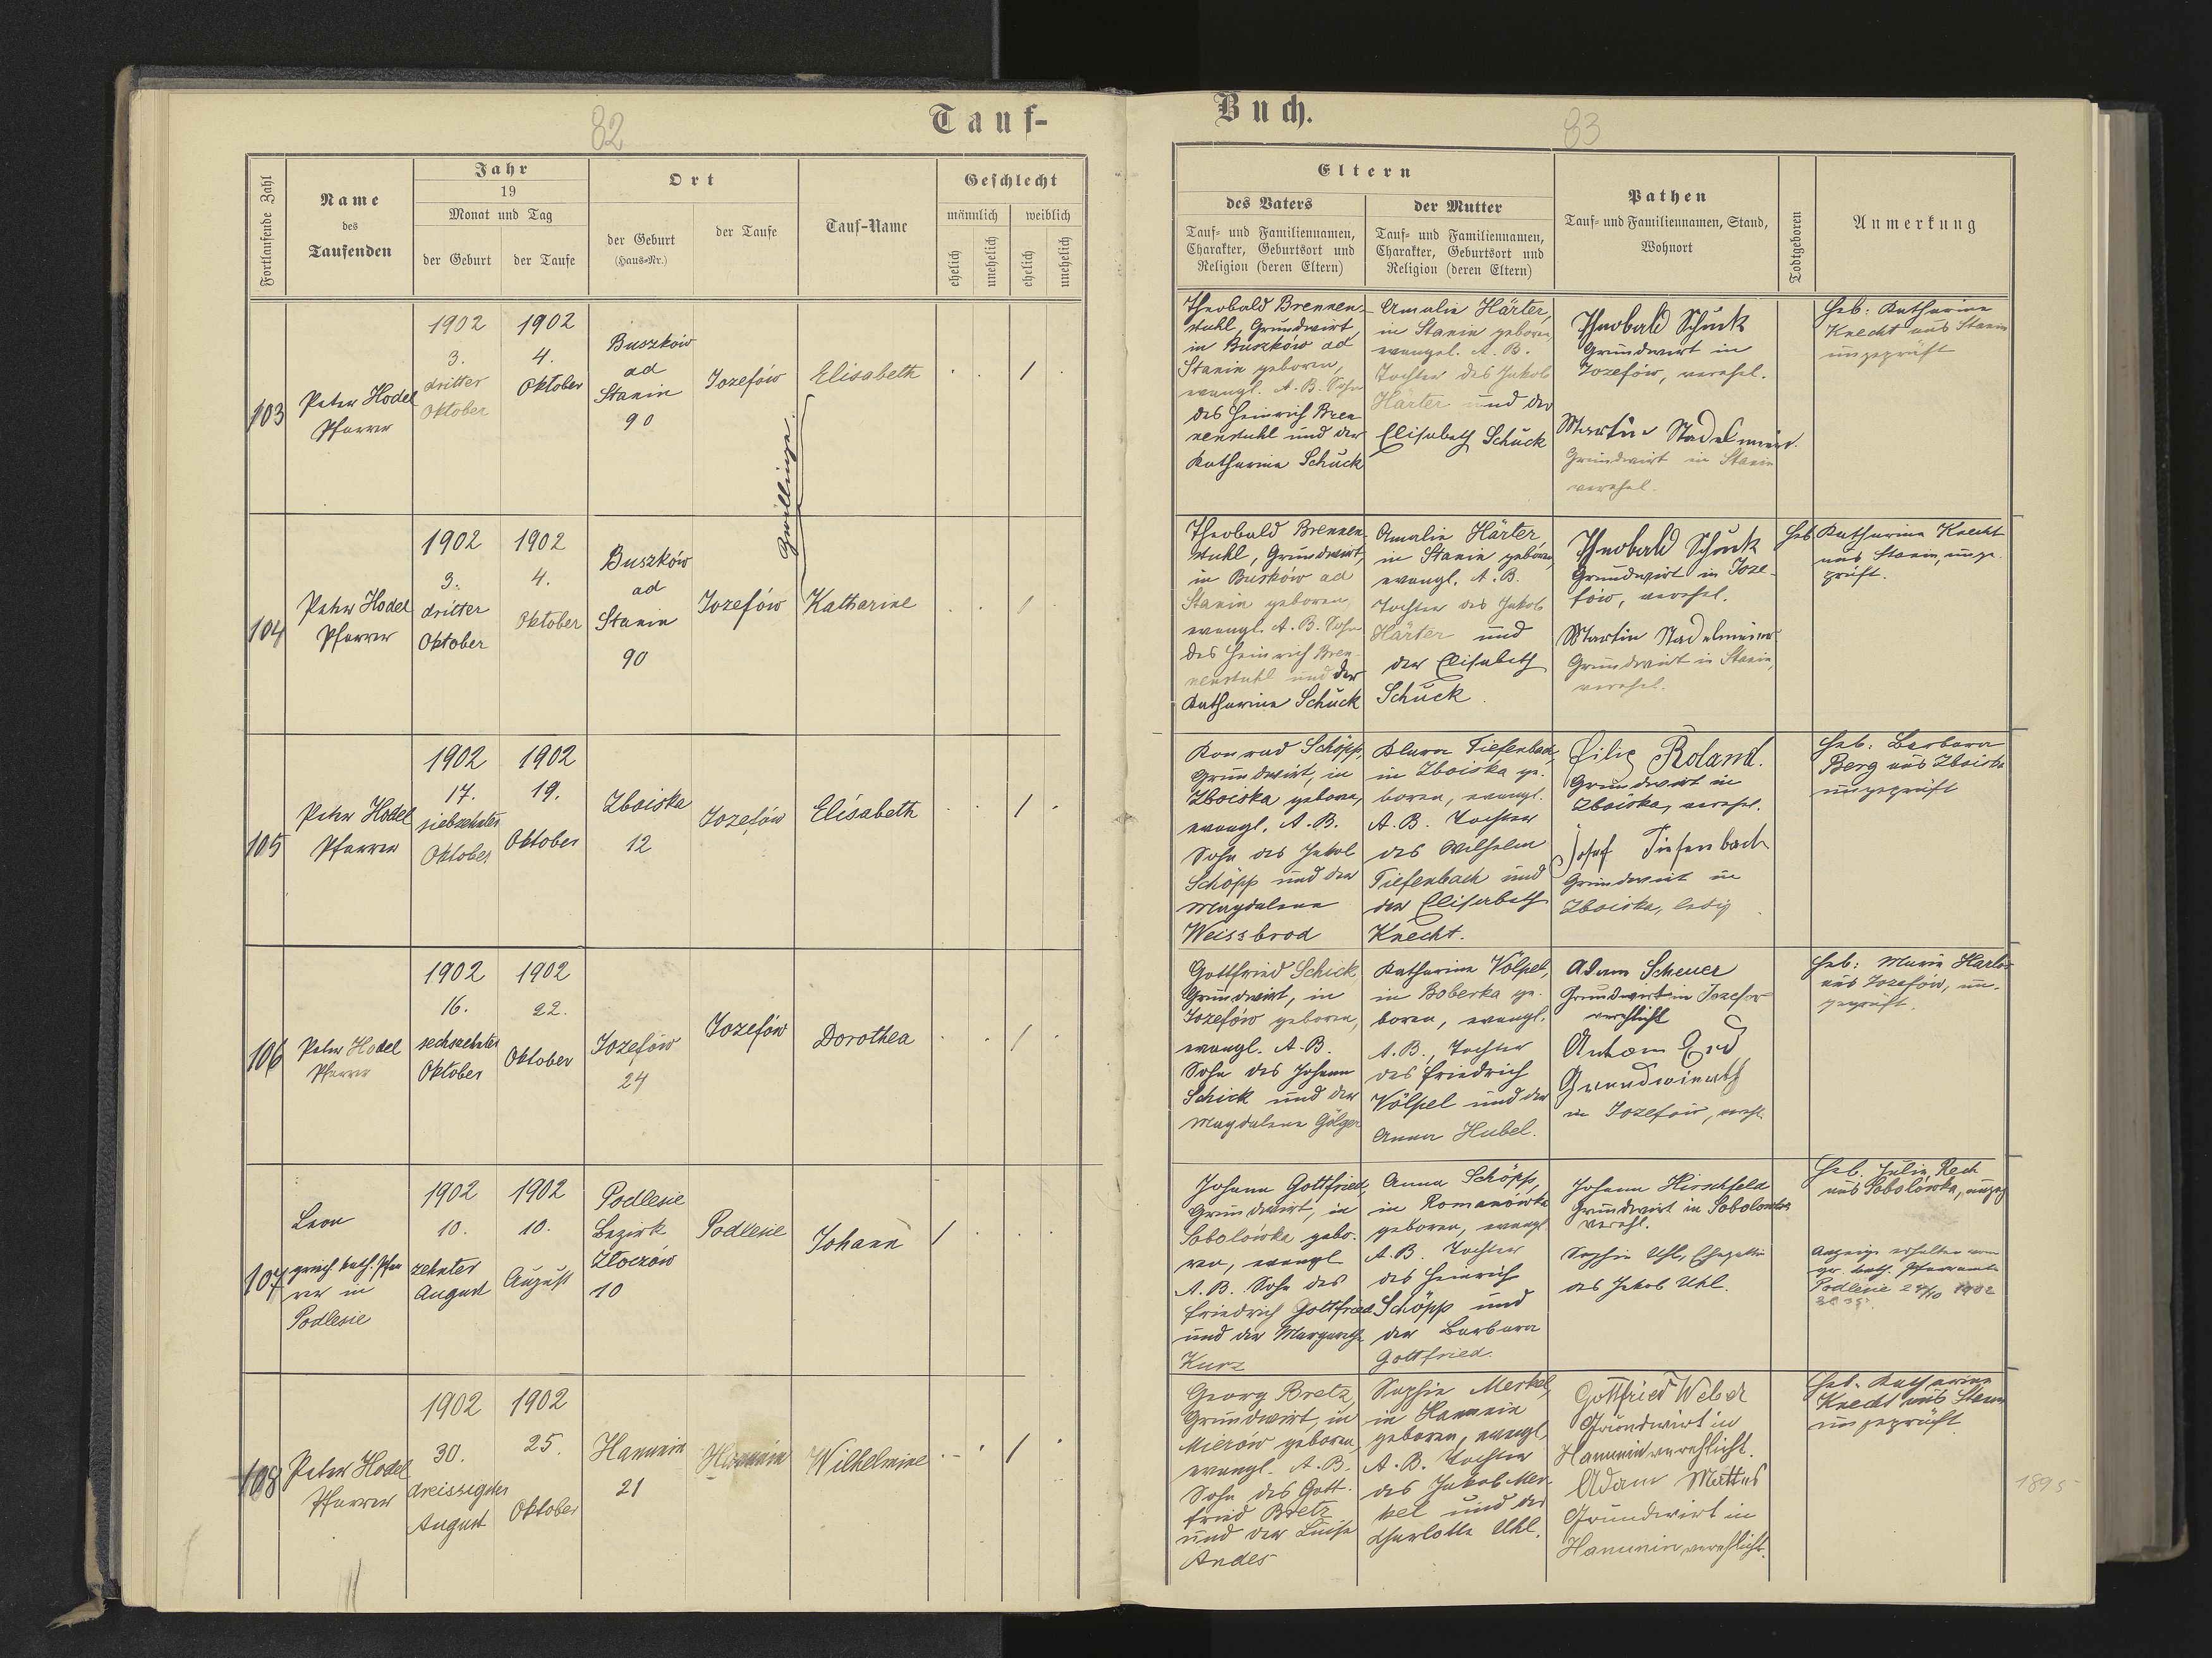 82
Tauf-
Fortlaufende Zahl
Name
des
Taufenden
Jahr
19
Monat und Tag
der Geburt
der Taufe
Ort
der Geburt
(Haus-Nr.)
der Taufe
Tauf-Name
Geschlecht
männlich
weiblich
ehelich
unehelich
ehelich
unehelich
103
Peter Hodel
Pfarrer
1902
3.
dritter
Oktober
1902
4.
Oktober
Buszków
ad
Stanin
90
Jozefów
Elisabeth
Zwillinge.
104
Peter Hodel
Pfarrer
1902
3.
dritter
Oktober
1902
4.
Oktober
Buszków
ad
Stanin
90
Jozefów
Katharine
105
Peter Hodel
Pfarrer
1902
17.
siebzehnter
Oktober
1902
19.
Oktober
Zboiska
12
Jozefów
Elisabeth
106
Peter Hodel
Pfarrer
1902
16.
sechzehnter
Oktober
1902
22.
Oktober
Jozefów
24
Jozefów
Dorothea
107
Leon
griech. kath. Pfar
rer in
Podlesie
1902
10.
zehnter
August
1902
10.
August
Podlesie
Bezirk
Złoczów
10
Podlesie
Johann
108
Peter Hodel
Pfarrer
1902
30.
dreissigster
August
1902
25.
Oktober
Hanunin
21
Hanunin
Wilhelmine
Buch.
83
Eltern
des Vaters
Tauf- und Familiennamen,
Charakter, Geburtsort und
Religion (deren Eltern)
der Mutter
Tauf- und Familiennamen,
Charakter, Geburtsort und
Religion (deren Eltern)
Pathen
Tauf- und Familiennamen, Stand,
Wohnort
Todtgeboren
Anmerkung
Theobald Brennen-
stuhl, Grundwirt,
in Buszków ad
Stanin geboren,
evangl. A. B. Sohn
des Heinrich Bren
nenstuhl und der
Katharina Schuck
Amalie Härter,
in Stanin geboren,
evangel. A. B.
Tochter des Jakob
Härter und der
Elisabeth Schuck
Theobald Schuck
Grundwirt in
Jozefów, verehel.
Martin Stadelmeier.
Grundwirt in Stanin
verehel.
Heb: Katharina
Knecht aus Stanin
ungeprüft
Theobald Brennen
stuhl, Grundwirt,
in Buskow ad
Stanin geboren,
evangl. A. B. Sohn
des Heinrich Bren-
nenstuhl und der
Katharina Schuck
Amalie Härter,
in Stanin geboren,
evangl. A. B.
Tochter des Jakob
Härter und
der Elisabeth
Schuck.
Theobald Schuck
Grundwirt in Joze-
fów, verehel.
Martin Stadelmeier
Grundwirt in Stanin,
verehel.
Heb Katharina Knecht
aus Stanin, unge-
prüft.
Konrad Schöpp,
Grundwirt, in
Zboiska geboren,
evangl. A. B.
Sohn des Jakob
Schöpp und der
Magdalena
Weissbrod
Klara Tiefenbach,
in Zboiska ge-
boren, evangl.
A. B. Tochter
des Wilhelm
Tiefenbach und
der Elisabeth
Knecht.
Filip Roland.
Grundwirt in
Zboiska, verehel.
Josef Tiefenbach
Grundwirt in
Zboiska, ledig
Heb: Barbara
Berg aus Zboiska
ungeprüft
Gottfried Schick,
Grundwirt, in
Jozefów geboren,
evangl. A. B.
Sohn des Johann
Schick und der
Magdalena Gölger
Katharina Völpel,
in Boberka ge-
boren, evangl.
A. B., Tochter
des Friedrich
Völpel und der
Anna Hubel.
Adam Scheuer
Grundwirt in Jozefow
verehlicht
Grundwirth
in Jozefow, verehl.
Heb: Maria Harlos
aus Jozefów, un-
geprüft.
Johann Gottfried,
Grundwirt, in
Sobolówka gebo-
ren, evangl.
A. B. Sohn des
Friedrich Gottfried
und der Margareth
Kurz
Anna Schöpp,
in Romanówka
geboren, evangl
A. B. Tochter
des Heinrich
Schöpp und
der Barbara
Gottfried.
Johann Hirschfeld
Grundwirt in Sobolowka
verehl.
Sophie Uhl, Ehegattin
des Jakob Uhl.
Heb. Julia Rech
aus Sobolówka, ungep
Anzeige erhalten vom
gr. kath. Pfarramte
Podlesie 24/10 1902
Georg Bretz,
Grundwirt, in
Mierów geboren,
evangl. A. B.
Sohn des Gott-
fried Bretz
und der Luise
Andes
Sophie Merkel,
in Hanunin
geboren, evangl.
A. B. Tochter
des Jakob Mer-
kel und der
Charlotte Uhl.
Gottfried Weber
Grundwirt in
Hanunin verehlicht.
Adam Mattus
Grundwirt in
Hanunin, verehlicht.
Heb. Katharina
Knecht aus Stanin
ungeprüft
1895